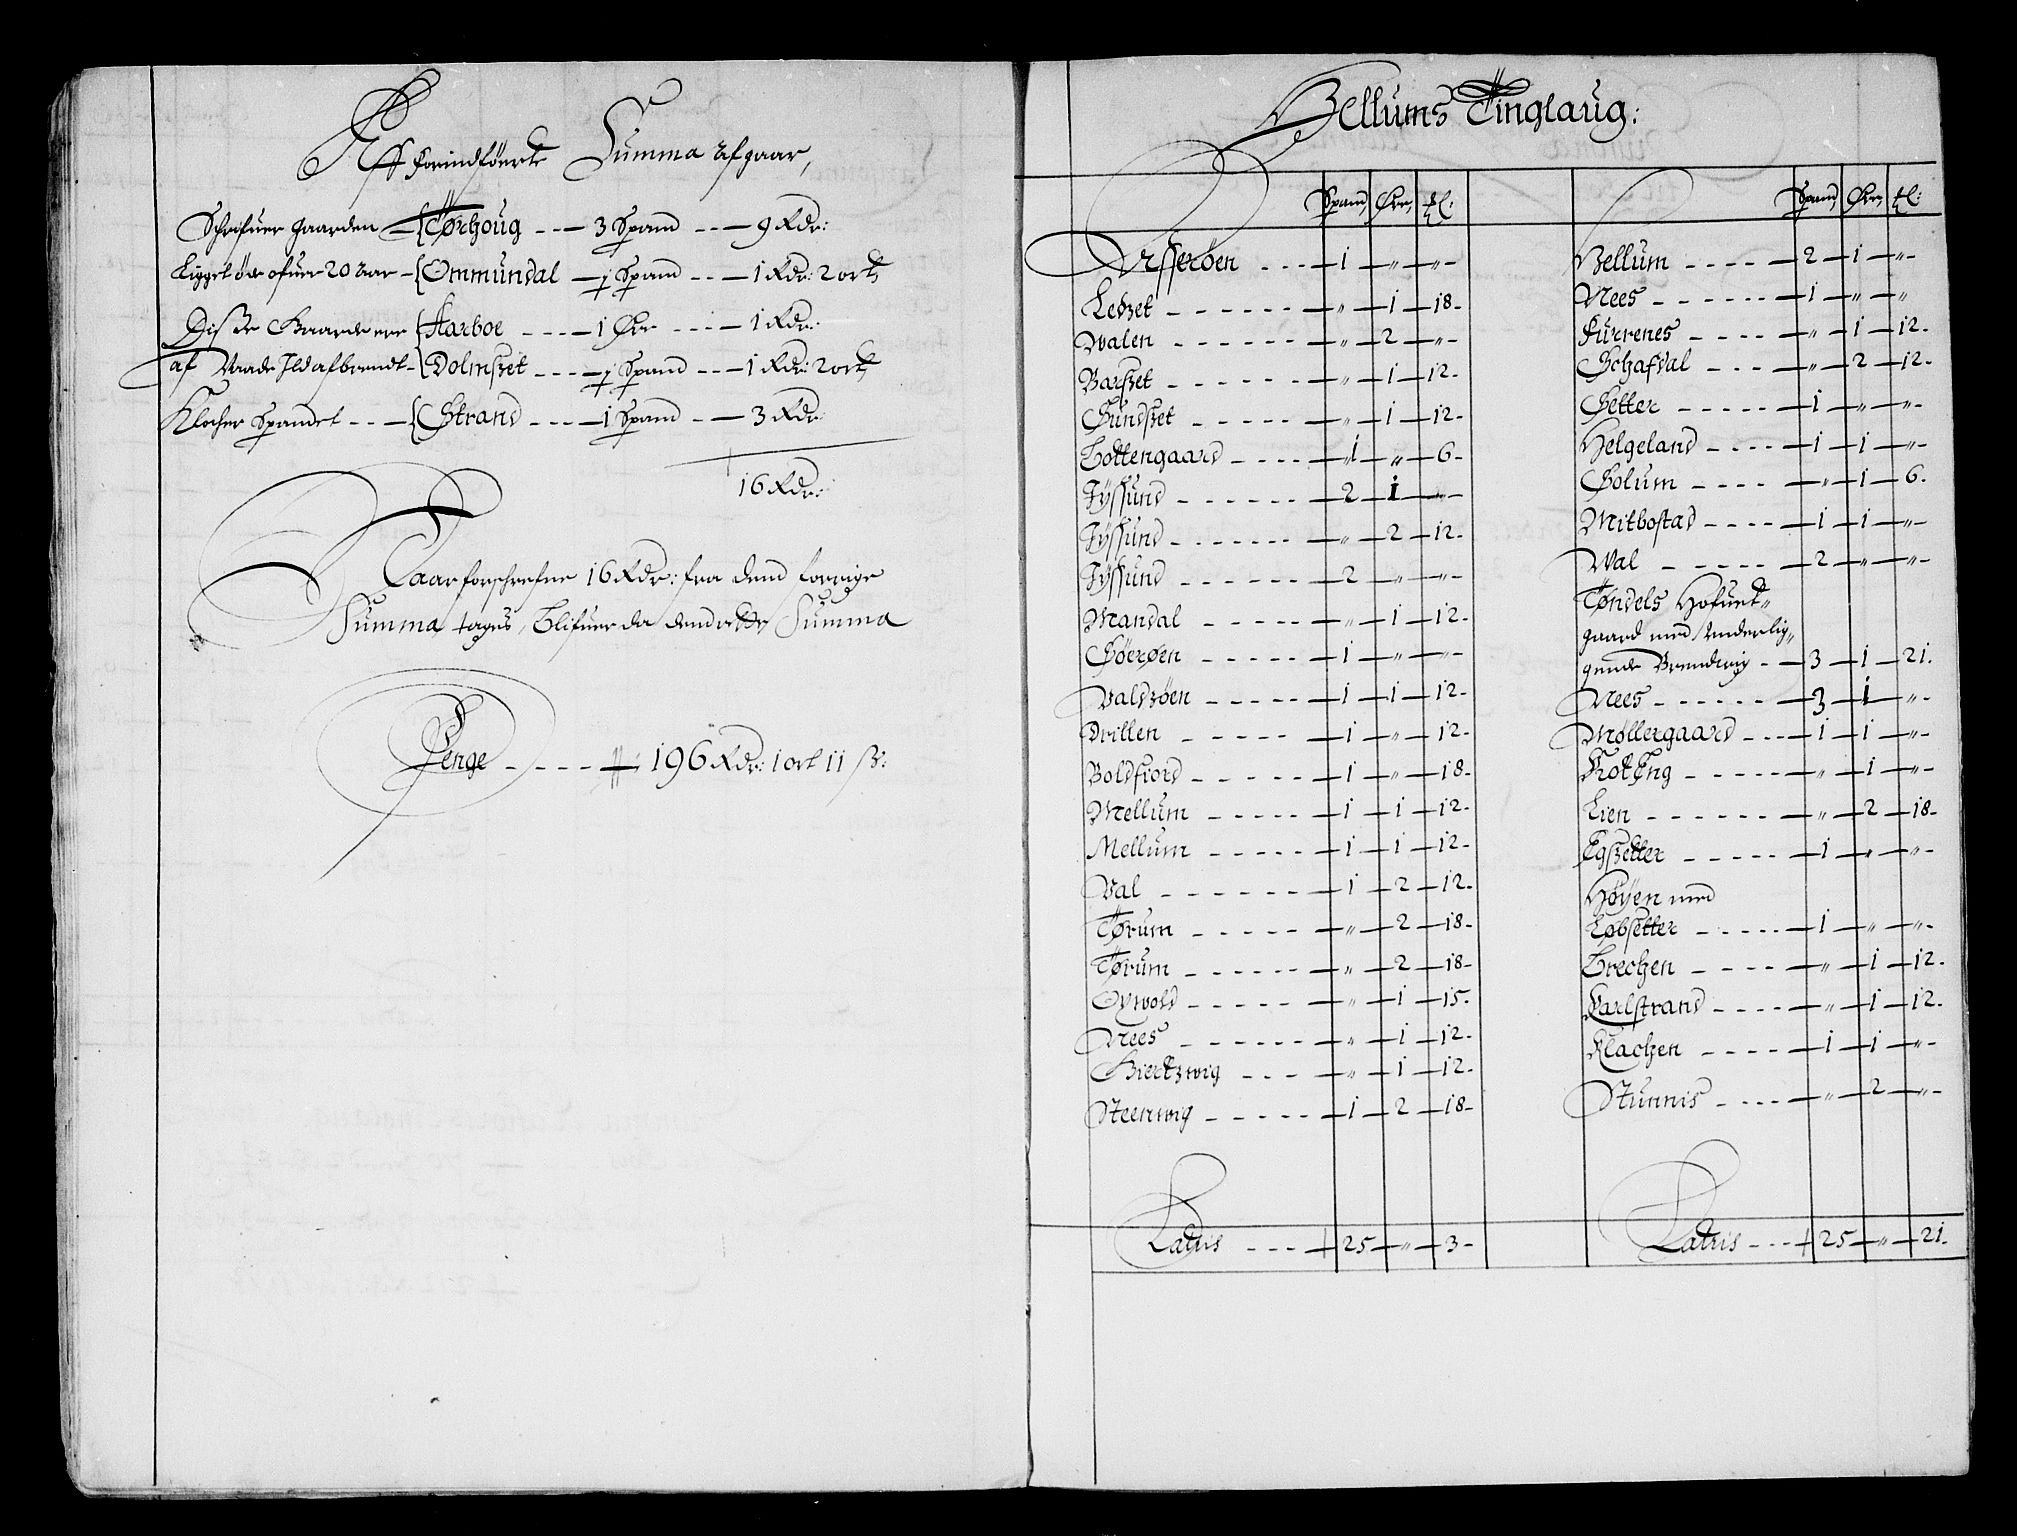 Aff forindførte Summa afgaar,
Schrifuer gaarden {Tørhoug --- 3 Spand --- 9 Rdr:
Ligget øde ofuer 20 Aar {Ommundal ½ Spand --- 1 Rdr: 2 ort
Disse Gaarde ere {Aarboe --- 1 Øre --- 1 Rdr:
af Vaade Ild afbrendt {Dolmszet --- ½ Spand --- 1 Rdr: 2 ort
Klocher Spandet --- {Strand --- 1 Spand --- 3 Rdr:
16 Rdr:
Naar forschrefne 16 Rdr: fra dend forrige
Summa tages, blifuer da dend rette Summa
Penge ---- 196 Rdr: 1 ort 11 ß:
Bellums Tinglaug:
Spand, Øre, ℔:
Usserøen --- 1 " "
Ledzet --- " 1 18
Walen --- " 2 "
Barszet --- " 1 12
Sundszet --- " 1 12
Tottengaard --- 1 " 6
Jÿssund --- 2 1 "
Jÿssund --- " 2 12
Jÿssund --- 2 " "
Mandal --- " 1 12
Søerøen --- 1 " "
Valdzøen --- 1 1 12
Drillen --- 1 " 12
Boldfiord --- 1 " 18
Mellum --- 1 1 12
Mellum --- 1 1 12
Val --- 1 2 12
Tørum --- " 2 18
Tørum --- " 2 18
Oxwold --- " 1 15
Nees --- " 1 12
Kierchwig --- " 1 12
Steenwig --- 1 2 18
Latris --- 25 " 3
Spand, Øre, ℔:
Bellum --- 2 1 "
Nees --- 1 " "
Furrenes --- " 1 12
Schafdal --- " 2 12
Setter --- 1 " "
Helgeland --- 1 1 "
Solum --- " 1 6
Mitbostad --- 1 1 "
Wal --- 2 " "
Tøndels Hofuet-
gaard med Underlig-
gende Brendwig --- 3 1 21
Nees --- 3 1 "
Møllergaard --- 1 1 "
Koteng --- " 1 "
Lien --- " 2 18
Egszetter --- 1 " "
Høÿen med
Løbsetter --- 1 " "
Brechen --- " 1 12
Karlstrand --- " 1 12
Klachen --- 1 1 "
Stunnis --- " 2 "
Latris --- 25 " 21